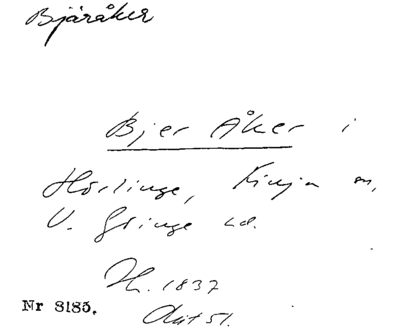 Bjäråker
Bjer Åker i
Hörlinge, Finja sn,
V. Göinge hd.
H. 1837
Akt 51.
Nr 8185.